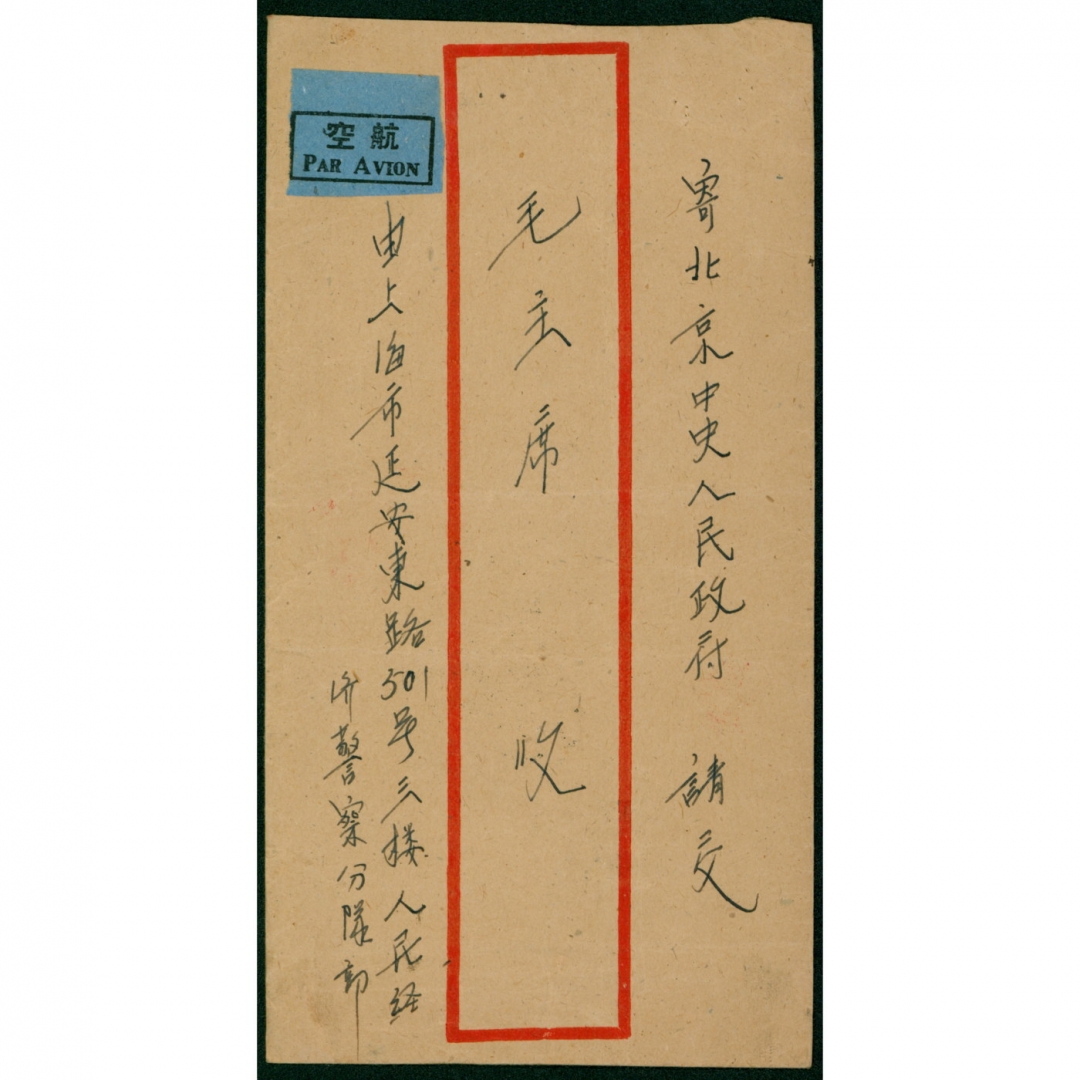 寄北京中央人民政府 請交
毛主席 收
空航
PAR AVION
由上海市延安東路501号三楼人民经
济警察分隊部